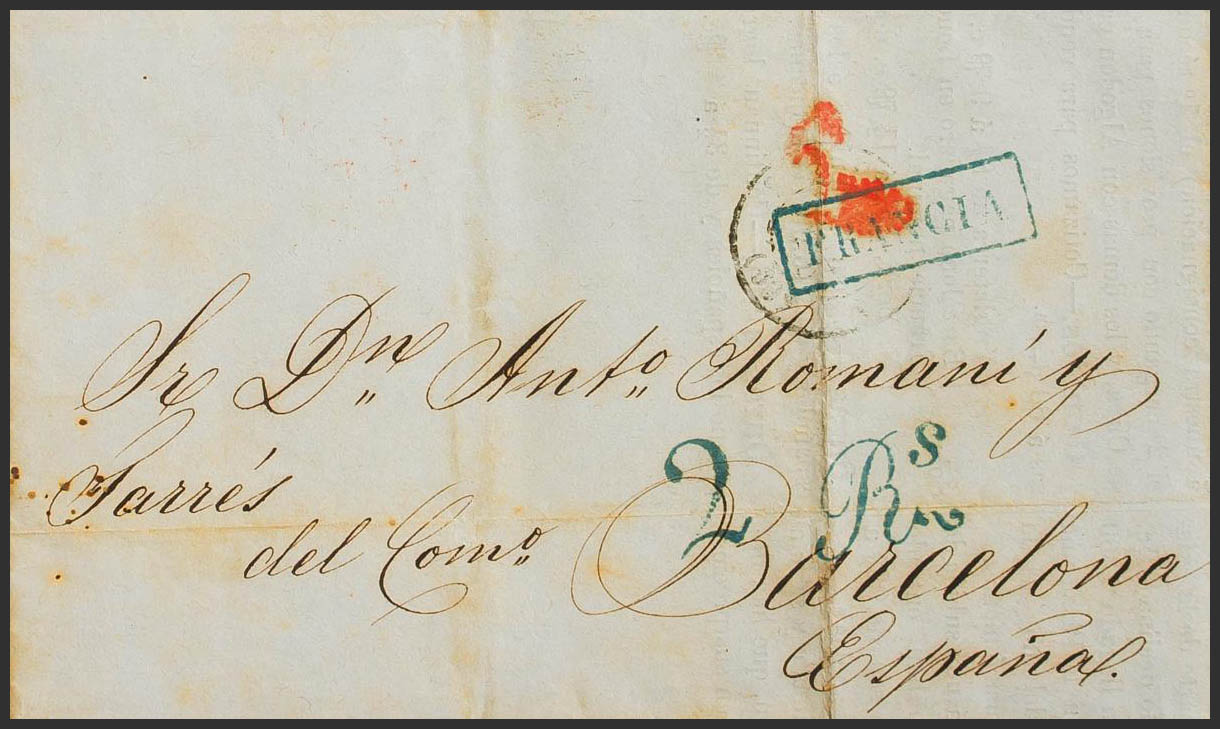 FRANCIA
Sr Dn Anto Romaní y
Farrés
2 Rs
del Como Barcelona
España.